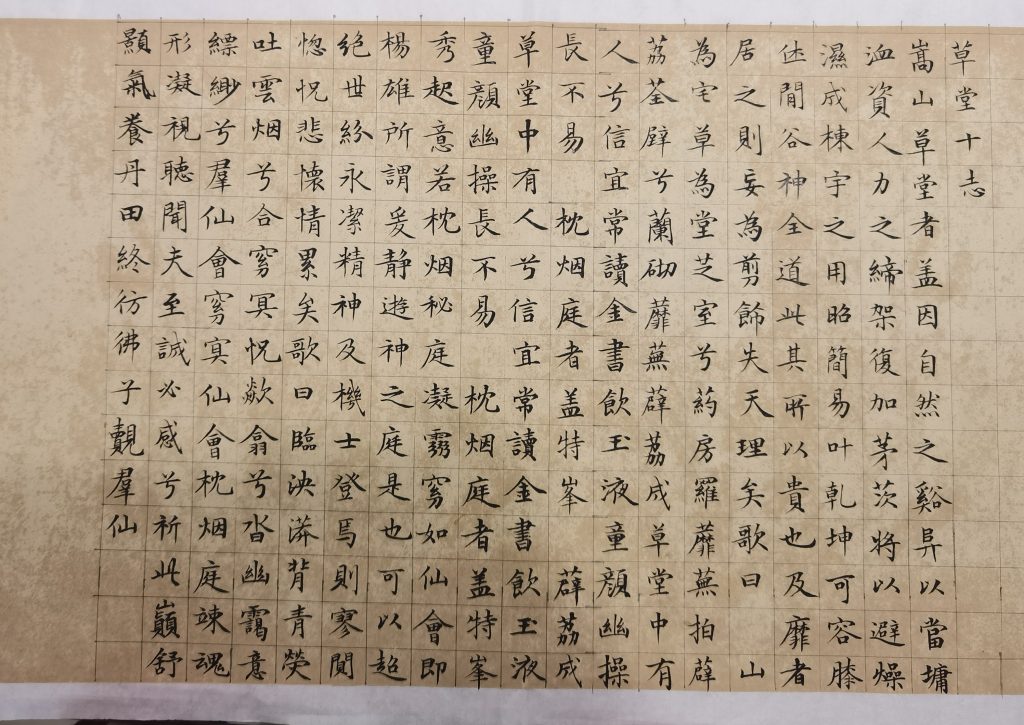 草堂十志
嵩山草堂者盖因自然之谿异以當墉
洫資人力之締架復加茅茨將以避燥
濕成棟宇之用昭簡易叶乾坤可容膝
休閒谷神全道此其所以貴也及靡者
居之則妄為剪飾失天理矣歌曰 山
為宅草為堂芝室兮葯房羅蘼蕪拍薜
荔荃辟兮蘭砌蘼蕪薜荔成草堂中有
人兮信宜常讀金書飲玉液童顏幽操
長不易 枕烟庭者盖特峯 薜荔成
草堂中有人兮信宜常讀金書飲玉液
童顏幽操長不易 枕烟庭者盖特峯
秀起意若枕烟秘庭凝霧窈如仙會即
楊雄所謂爰静遊神之庭是也可以超
绝世紛永潔精神及機士登焉則寥闃
惚怳悲懷情累矣歌曰臨泱漭背青熒
吐雲烟兮合窈冥怳歘翕兮沓幽靄意
縹緲兮羣仙會窈冥仙會枕烟庭竦魂
形凝視聽聞夫至誠必感兮祈此巔舒
顥氣養丹田終彷彿子覿羣仙